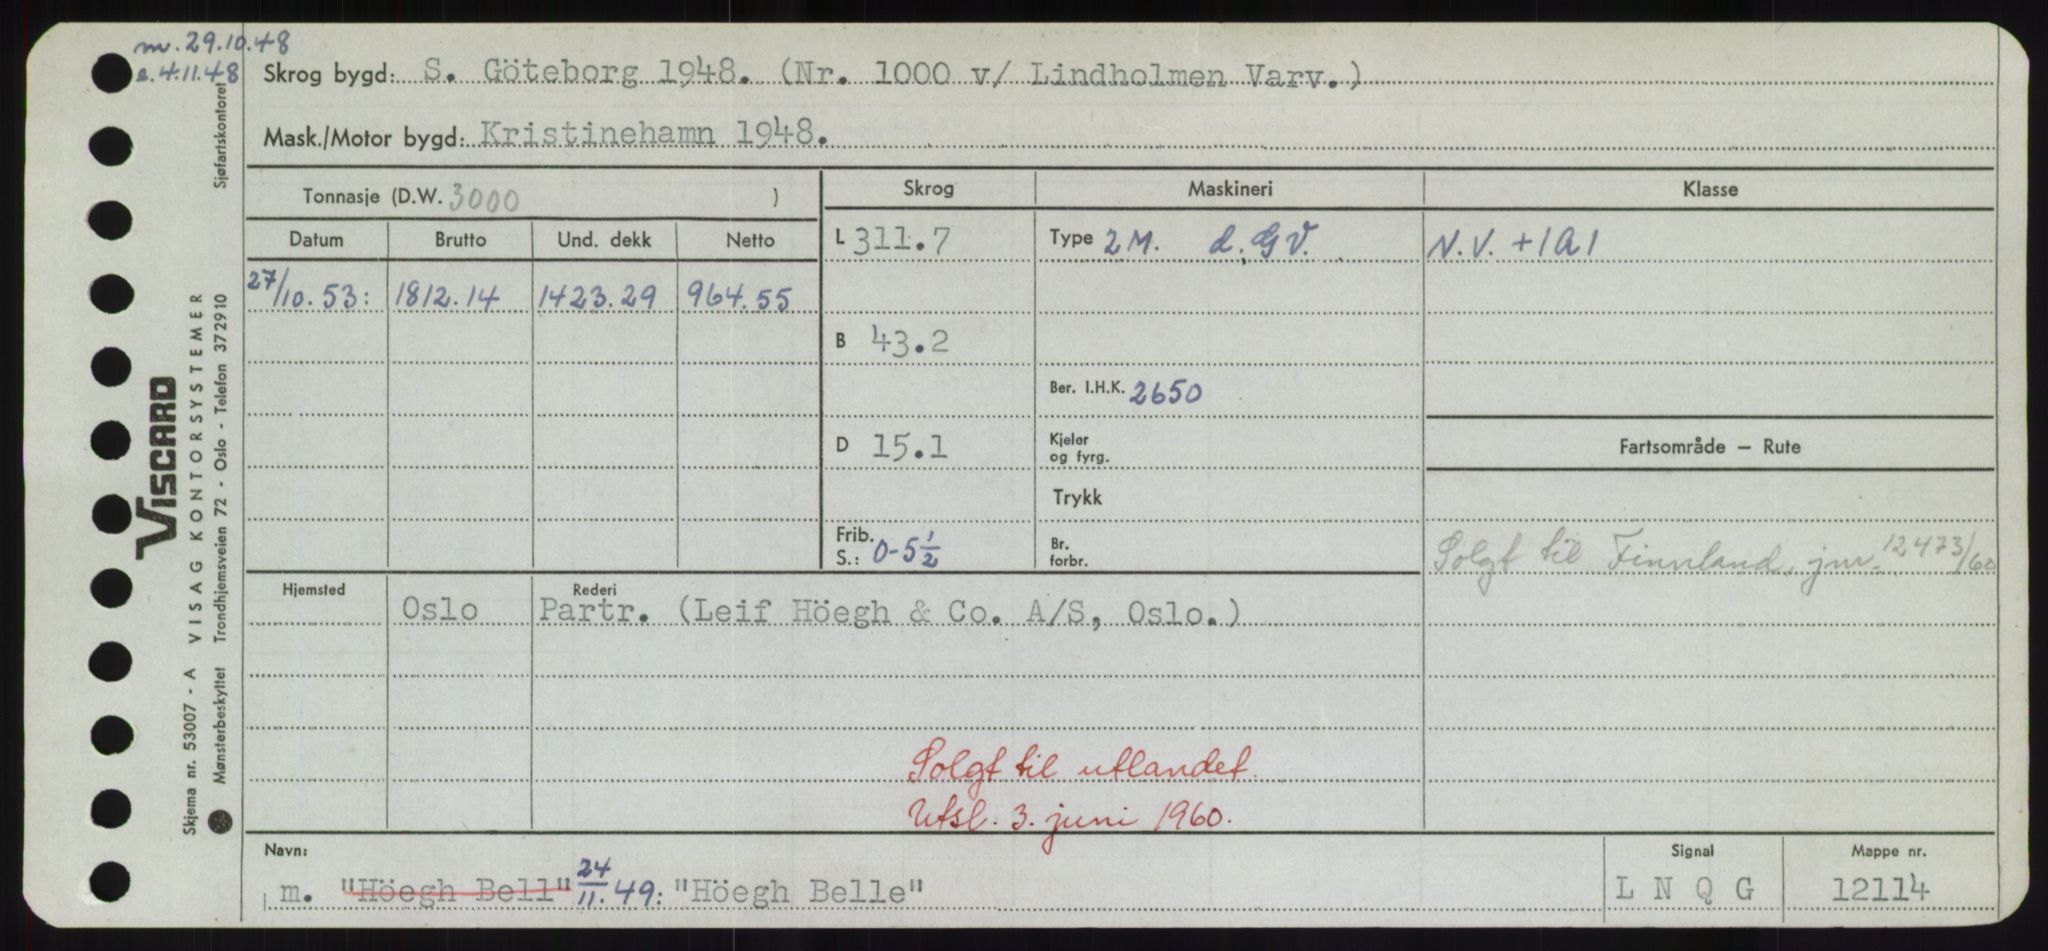 m. 29.10.48
e. 4.11.48
Skrog bygd: S. Göteborg 1948. (Nr. 1000 v/ Lindholmen Varv.)
Mask./Motor bygd: Kristinehamn 1948.
Tonnasje (D.W. 3000 )
Skrog Maskineri Klasse
Datum Brutto Und. dekk Netto
L 311.7 Type 2 M. d. G V. N.V. +1A1
27/10.53: 1812.14 1423.29 964.55
B 43.2
Ber. I.H.K. 2650
D 15.1 Kjeler og fyrg.
Fartsområde — Rute
Trykk
Frib. S.: 0-5 1/2 Br. forbr.
Solgt til Finnland, jnr. 12473/60
Hjemsted Rederi
Oslo Partr. (Leif Höegh & Co. A/S, Oslo.)
Solgt til utlandet.
Utsl. 3. juni 1960.
Navn: Signal Mappe nr.
m. "Höegh Bell" 24/11.49: "Höegh Belle" L N Q G 12114
Skjema nr. 53007 - A VISAG KONTORSYSTEMER
Mønsterbeskyttet Trondhjemsveien 72 - Oslo - Telefon 372910 Sjøfartskontoret
VISCARD